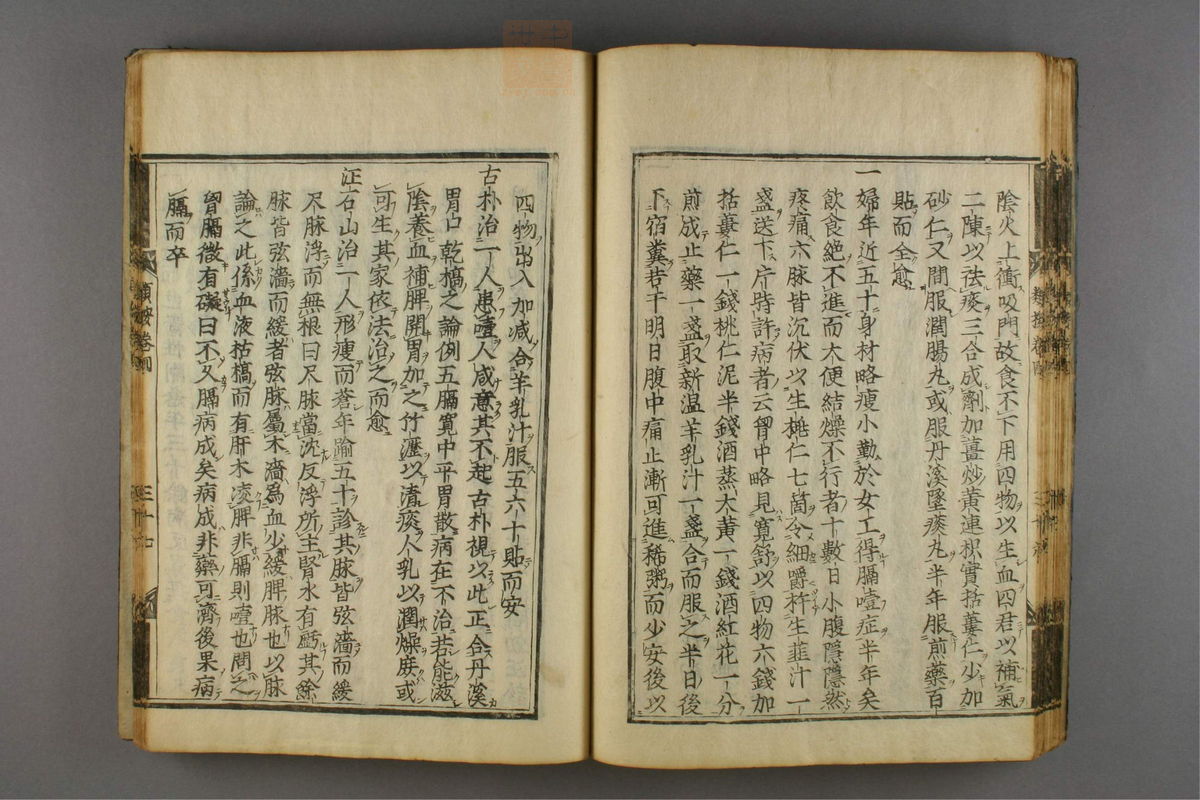 陰火上衝吸門故食不下用四物以生血四君以補氣
二陳以祛痰三合成劑加薑炒黃連枳實括蔞仁少加
砂仁又間服潤腸丸或服丹溪墜痰丸半年服煎藥百
貼而全愈
一婦年近五十身材略瘦小勤於女工得膈噎症半年矣
飲食絶不進而大便結燥不行者十數日小腹隱隱然
疼痛六脉皆沉伏以生桃仁七箇令細嚼杵生韮汁一
盞送下片時許病者云胷中略見寬舒以四物六錢加
括蔞仁一錢桃仁泥半錢酒蒸大黃一錢酒紅花一分
煎成止藥一盞取新温羊乳汁一盞合而服之半日後
下宿糞若干明日腹中痛止漸可進稀粥而少安後以
四物出入加减合羊乳汁服五六十貼而安
古朴治一人患噎人咸意其不起古朴視以此正合丹溪
胃口乾槁之論例五膈寬中平胃散病在不治若能滋
陰養血補脾開胃加之竹瀝以清痰人乳以潤燥庻或
可生其家依法治之而愈
汪石山治一人形瘦而蒼年踰五十診其脉皆弦濇而緩
尺脉浮而無根曰尺脉當沈反浮所主腎水有虧其餘
脉皆弦濇而緩者弦脉屬木濇爲血少緩脾脉也以脉
論之此係血液枯槁而有肝木凌脾非膈則噎也問之
胷膈微有礙曰不久膈病成矣病成非藥可濟後果病
膈而卒
類按卷四